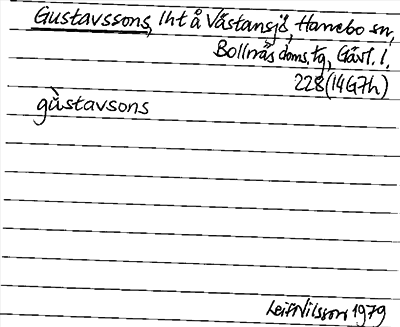 Gustavssons, lht å Västansjö, Hanebo sn,
Bollnäs doms. tg, Gävl. l.
228 (14G7h)
gùstavsons
Leif Nilsson 1979